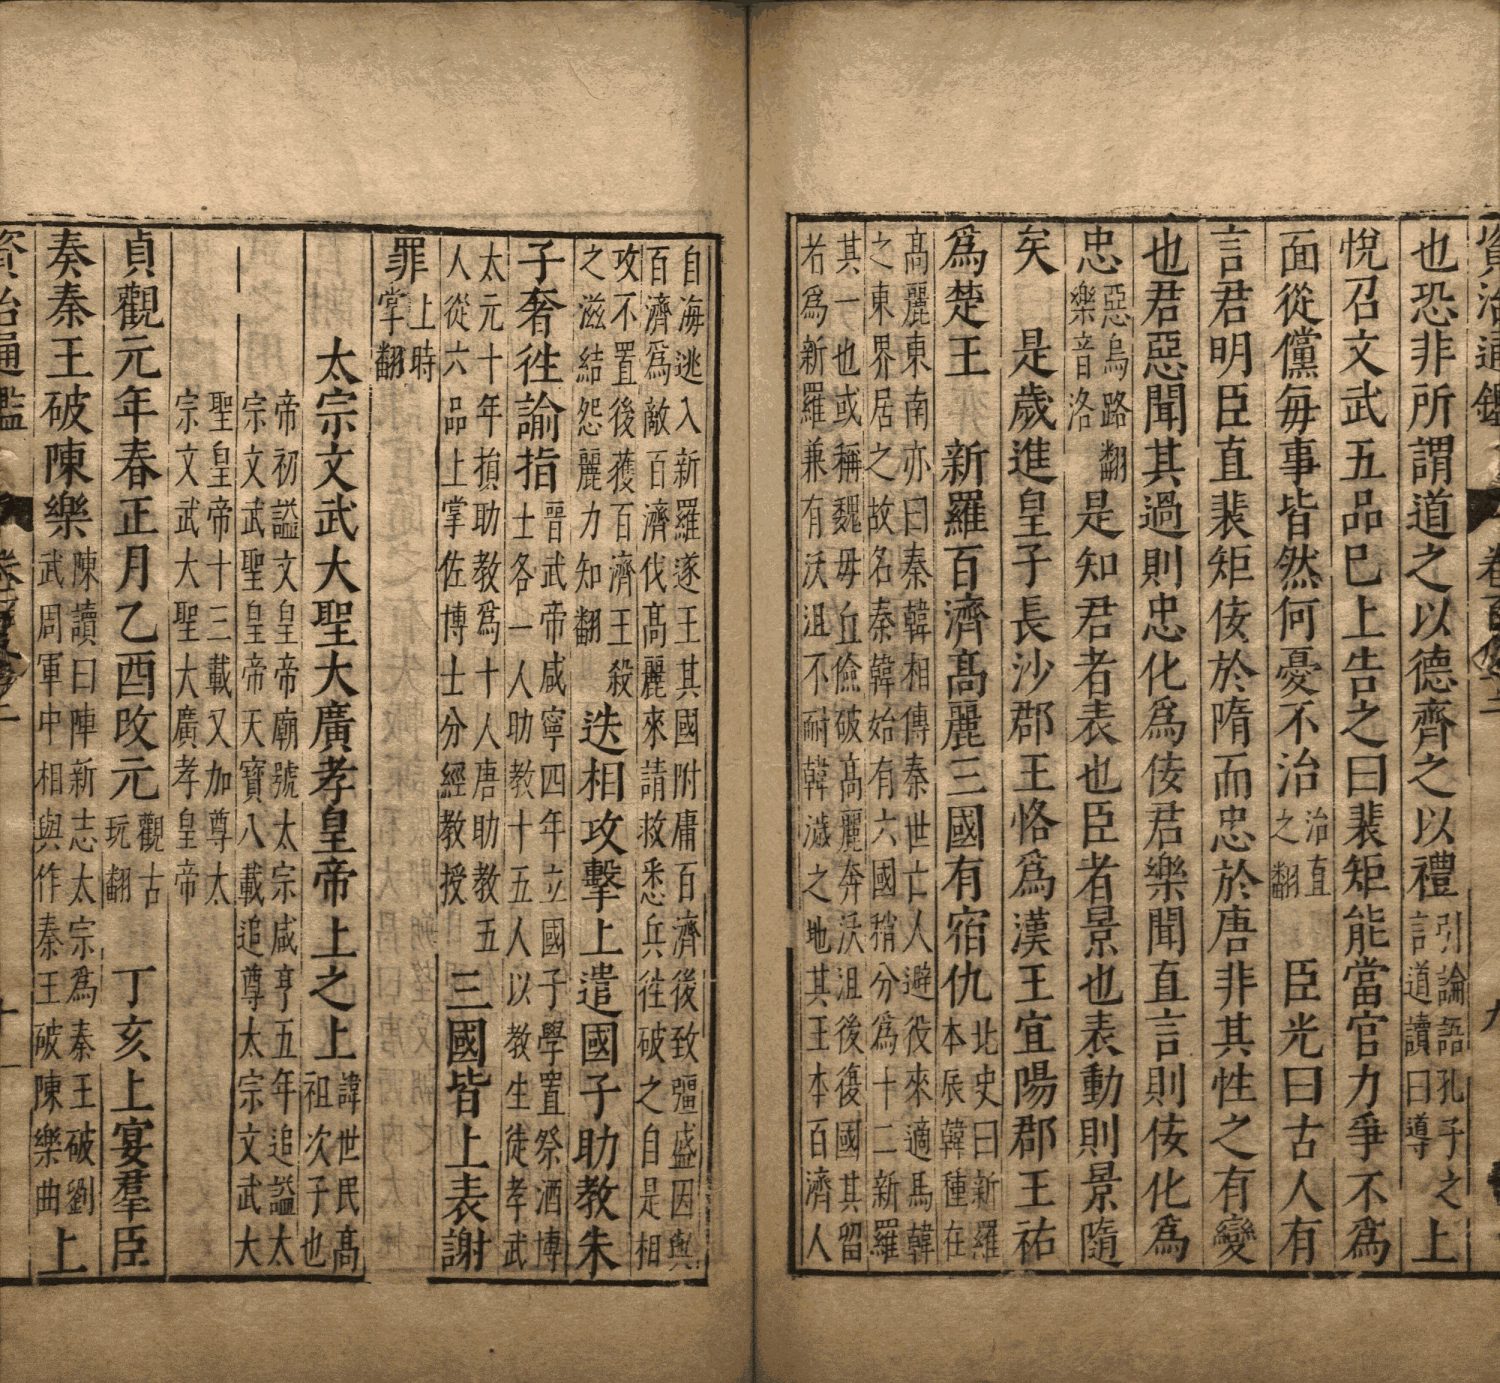 資治通鑑
九
也恐非所謂道之以德齊之以禮引論語孔子之言道讀曰導上
悅召文武五品巳上告之曰裴矩能當官力爭不爲
面從儻毎事皆然何憂不治治直之翻　臣光曰古人有
言君明臣直裴矩佞於隋而忠於唐非其性之有變
也君惡聞其過則忠化爲佞君樂聞直言則佞化爲
忠惡烏路翻樂音洛是知君者表也臣者景也表動則景隨
矣　是歲進皇子長沙郡王恪爲漢王宜陽郡王祐
爲楚王　新羅百濟髙麗三國有宿仇北史曰新羅本辰韓種在
髙麗東南亦曰秦韓相傳秦世亡人避役來適馬韓之東界居之故名秦韓始有六國稍分爲十二新羅
其一也或稱魏毋丘儉破髙麗奔沃沮後復國其留若爲新羅兼有沃沮不耐韓濊之地其王本百濟人
自海逃入新羅遂王其國附庸百濟後致彊盛因與百濟爲敵百濟伐髙麗來請救悉兵往破之自是相
攻不置後獲百濟王殺之滋結怨麗力知翻迭相攻擊上遣國子助教朱
子奢徃諭指晉武帝咸寧四年立國子學置祭酒博士各一人助教十五人以教生徒孝武
太元十年損助教爲十人唐助教五人從六品上掌佐博士分經教授三國皆上表謝
罪上時掌翻
太宗文武大聖大廣孝皇帝上之上諱世民髙祖次子也
帝初諡文皇帝廟號太宗咸亨五年追諡太宗文武聖皇帝天寶八載追尊太宗文武大
聖皇帝十三載又加尊太宗文武大聖大廣孝皇帝
貞觀元年春正月乙酉攺元觀古玩翻　丁亥上宴羣臣
奏秦王破陳樂陳讀曰陣新志太宗爲秦王破劉武周軍中相與作秦王破陳樂曲上
資治通鑑
十一